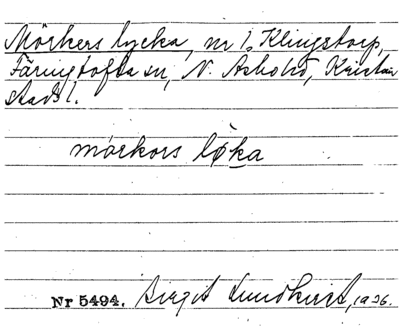 Mörkers lycka, nr 1, Klingstorp,
Färingtofta sn, N. Åsbohd, Kristian
stads l.
mörkors løka
Nr 5494. Birgit Lundkvist, 1936.